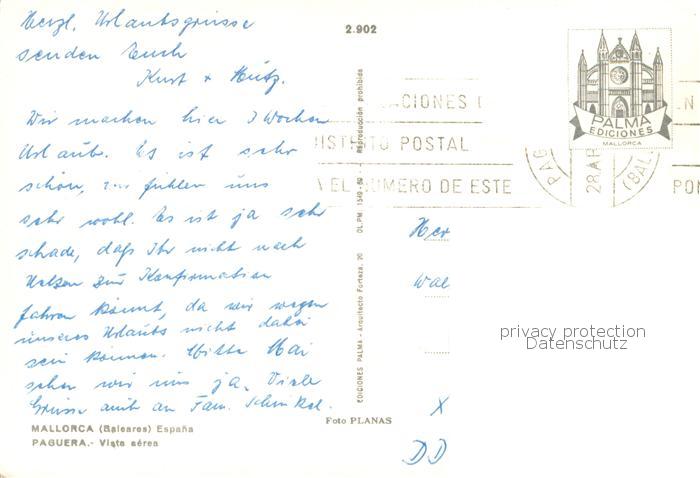 Herzl. Urlaubsgrüsse
senden Euch
Kurt +
Wir machen hier 3 Wochen
Urlaub. Es ist sehr
schön, wir fühlen uns
sehr wohl. Es ist ja sehr
schade, daß Ihr nicht nach
zur Konfirmation
fahren könnt, da wir wegen
unseres Urlaubs nicht dabei
sein können. Mitte Mai
sehen wir uns ja. Viele
Grüsse auch an Fam.
MALLORCA (Baleares) España
PAGUERA.- Vista aérea
2.902
EDICIONES PALMA - Arquitecto Forteza, 20 DL.PM. 1549-62 - Reproducción prohibida
Foto PLANAS
CACIONES
POSTAL
EL NUMERO DE ESTE
PAG
28 AB
(BAL.
N
PON
PALMA
EDICIONES
MALLORCA
Her
Wal
X
DD
privacy protection
Datenschutz